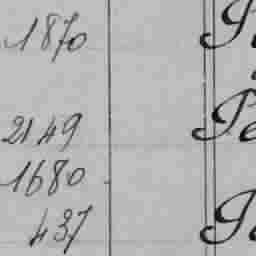 1870
2149 Pe
1680
437